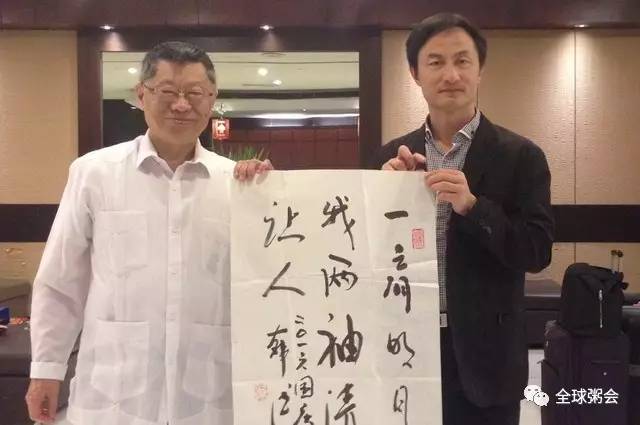 一肩明月
我两袖清
让人
二〇一六国庆
韩
全球粥会